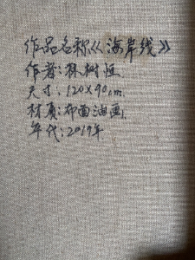 作品名称《海岸线》
作者:林树恒
尺寸:120x90cm
材质:布面油画
年代:2019年